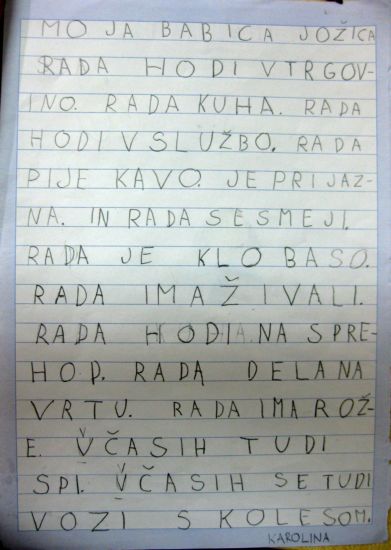 MOJA BABICA JOŽICA
RADA HODI V TRGOV-
INO. RADA KUHA. RADA
HODI V SLUŽBO. RADA
PIJE KAVO. JE PRIJAZ-
NA. IN RADA SE SMEJI.
RADA JE KLOBASO.
RADA IMA ŽIVALI.
RADA HODI NA SPRE-
HOD. RADA DELA NA
VRTU. RADA IMA ROŽ-
E. VČASIH TUDI
SPI. VČASIH SE TUDI
VOZI S KOLESOM.
KAROLINA